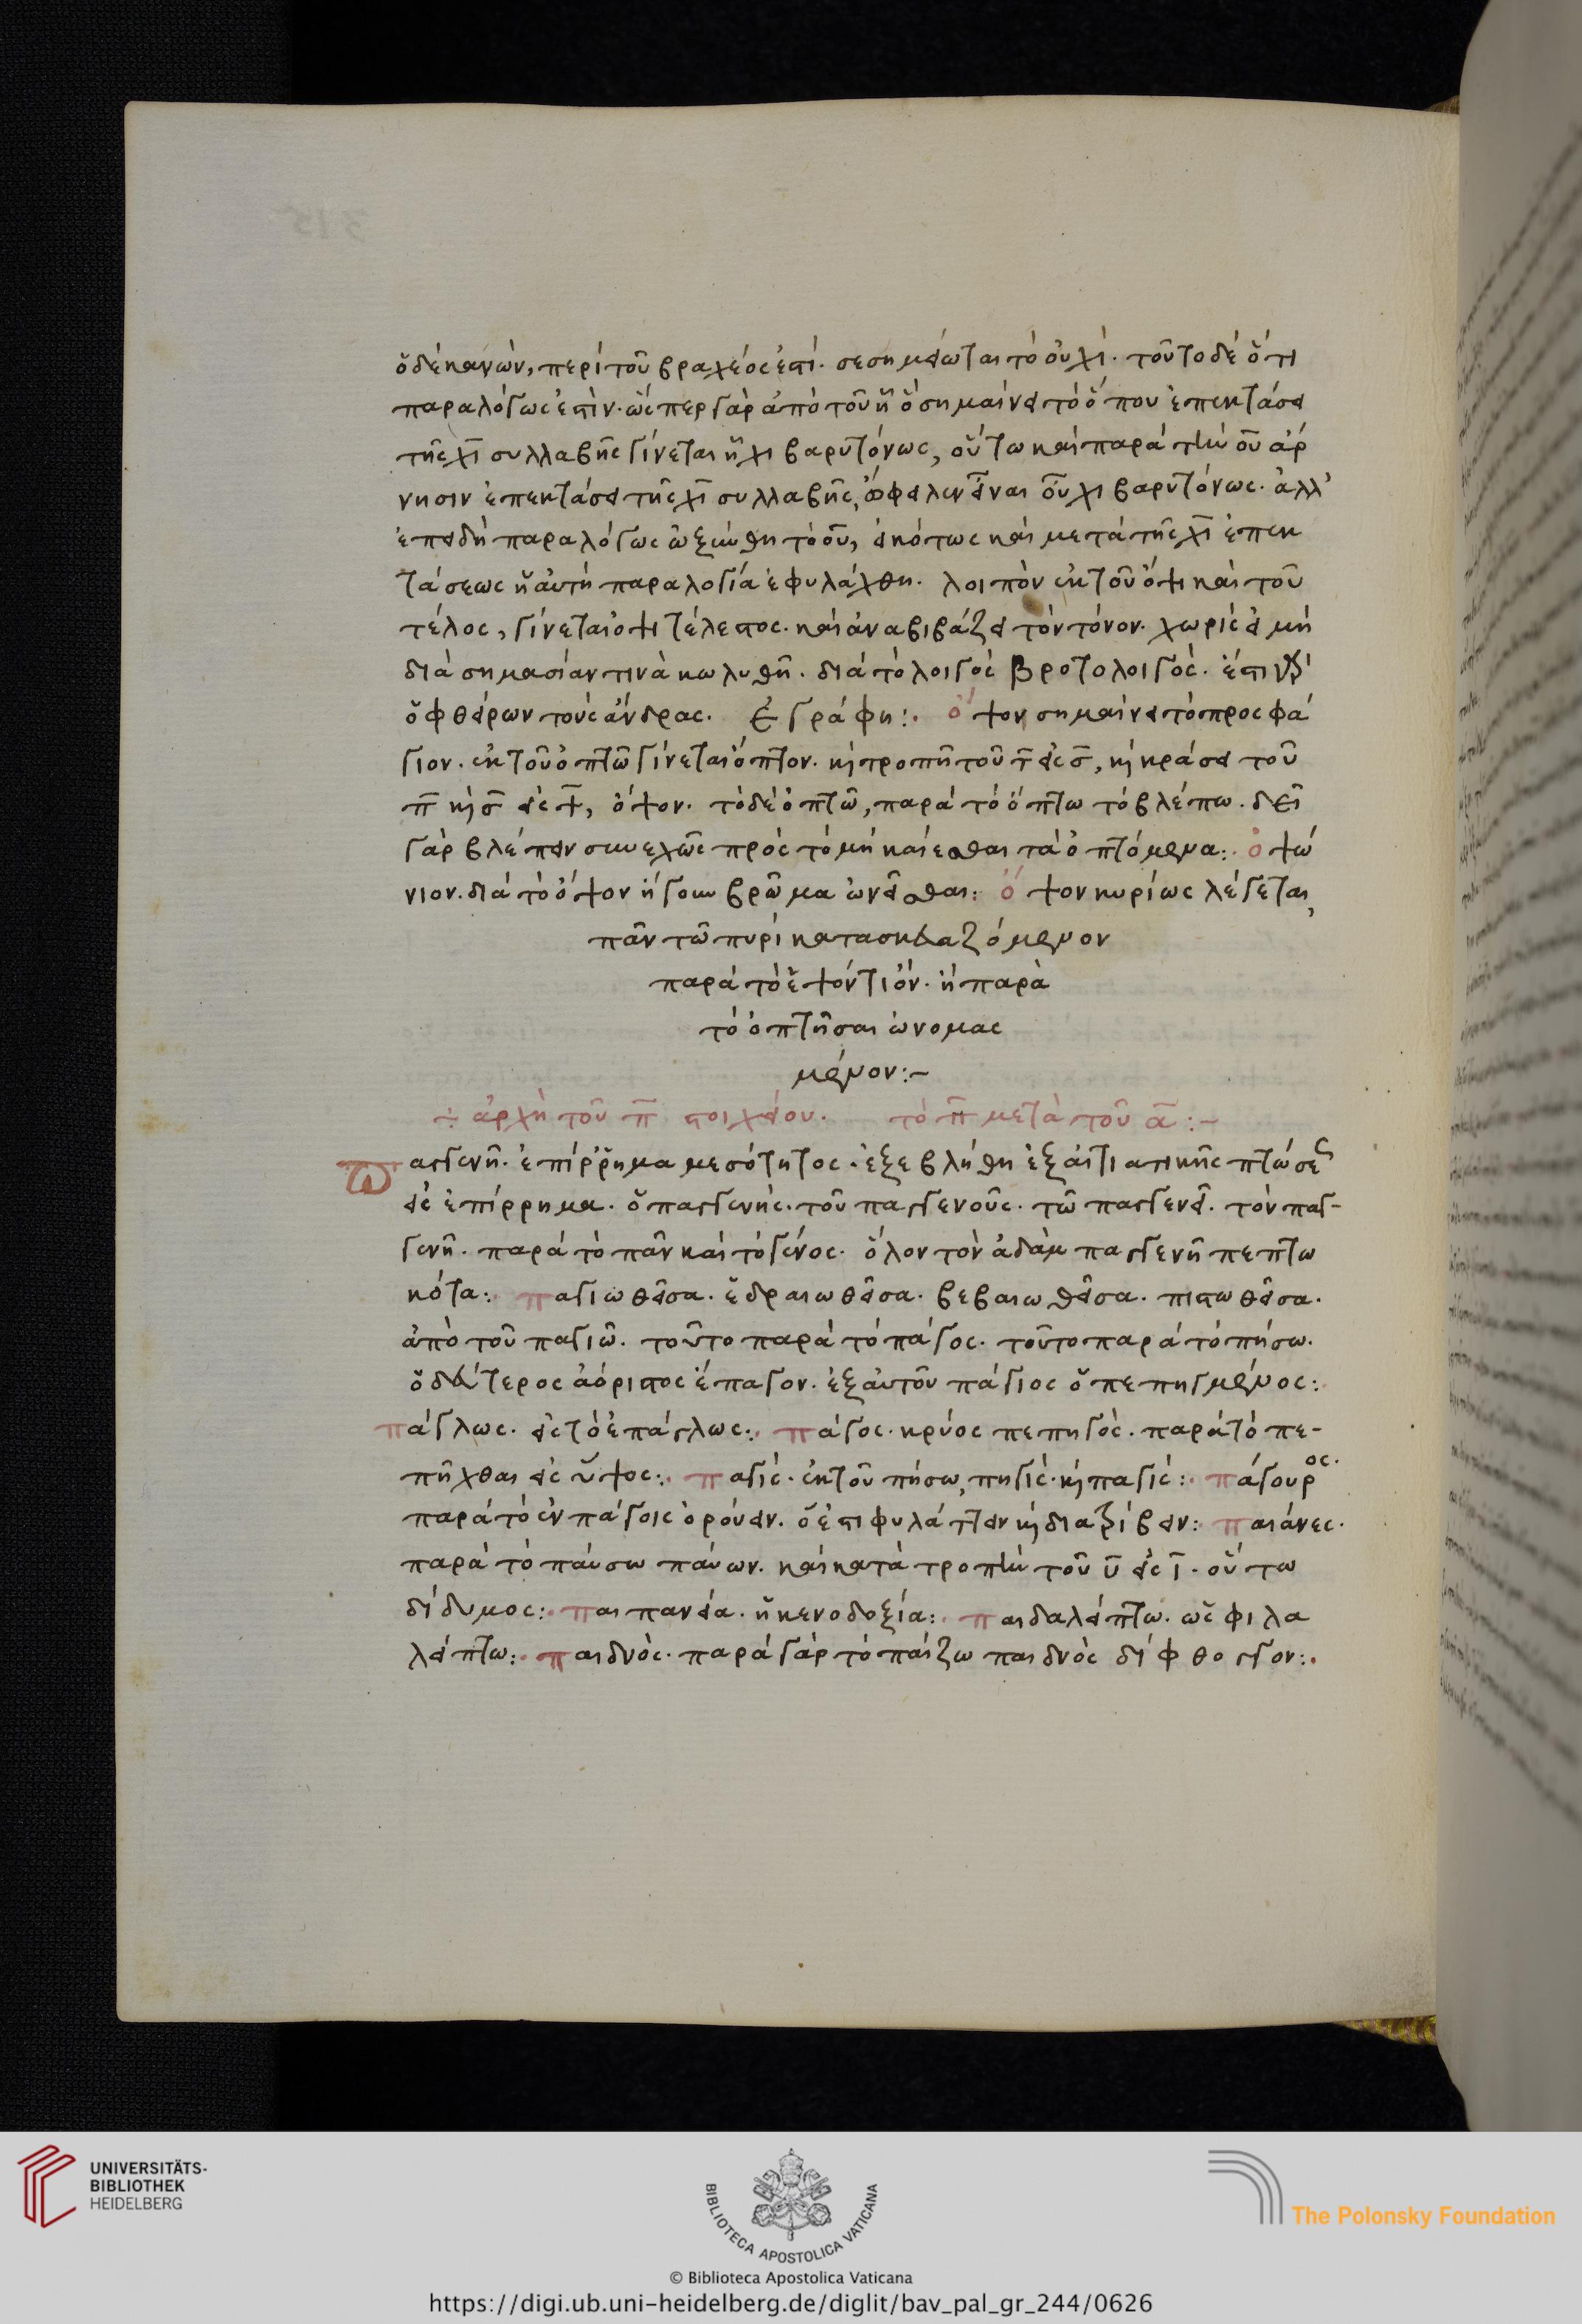 ὁ δὲ κανὼν, περὶ τοῦ βραχέος ἐστί. σεσημείωται τὸ οὐχί. τοῦτο δὲ ὅτι
παραλόγως ἐστὶν. ὥσπερ γὰρ ἀπὸ τοῦ ἧ ὃ σημαίνει τὸ ὅπου ἐπεκτάσει
τῆς χι συλλαβῆς γίνεται ἧχι βαρυτόνως, οὕτω καὶ παρὰ τὴν οὒ ἄρ
νησιν ἐπεκτάσει τῆς χι συλλαβῆς, ὤφειλεν εἶναι οὖχι βαρυτόνως. ἀλλ'
ἐπειδὴ παραλόγως ὠξύνθη τὸ οὒ, εἰκότως καὶ μετὰ τῆς χι ἐπεκ
τάσεως ἡ αὐτὴ παραλογία ἐφυλάχθη. λοιπὸν ἐκ τοῦ ὀψὲ καὶ τοῦ
τέλος, γίνεται ὀψιτέλεστος. καὶ ἀναβιβάζει τὸν τόνον. χωρὶς εἰ μὴ
διὰ σημασίαν τινὰ κωλυθῆ. διὰ τὸ λοιγὸς βροτολοιγὸς. ἔστι γὰρ
ὁ φθείρων τοὺς ἄνδρας. ἐγράφη: ὄψον σημαίνει τὸ προσφά
γιον. ἐκ τοῦ ὀπτῶ γίνεται ὄπτον. καὶ τροπῆ τοῦ τ εἰς σ, καὶ κράσει τοῦ
π καὶ σ εἰς ψ, ὄψον. τὸ δὲ ὀπτῶ, παρὰ τὸ ὄπτω τὸ βλέπω. δεῖ
γὰρ βλέπειν συνεχῶς πρὸς τὸ μὴ καίεσθαι τὰ ὀπτόμενα: ὀψώ
νιον. διὰ τὸ ὄψον ἤγουν βρῶμα ὠνεῖσθαι: ὄψον κυρίως λέγεται,
πᾶν τῶ πυρὶ κατασκευαζόμενον
παρὰ τὸ ἕψον τι ὄν. ἢ παρὰ
τὸ ὀπτῆσαι ὠνομας
μένον:~
÷ ἀρχὴ τοῦ π στοιχείου. τὸ π μετὰ τοῦ α:~
Παγγενῆ. ἐπίρρημα μεσότητος. ἐξεβλήθη ἐξ αἰτιατικῆς πτώσεως
εἰς ἐπίρρημα. ὁ παγγενὴς. τοῦ παγγενοῦς. τῶ παγγενεῖ. τὸν παγ-
γενῆ. παρὰ τὸ πᾶν καὶ τὸ γένος. ὅλον τὸν ἀδὰμ παγγενῆ πεπτω
κότα: παγιωθεῖσα. ἑδραιωθεῖσα. βεβαιωθεῖσα. πιστωθεῖσα.
ἀπὸ τοῦ παγιῶ. τοῦτο παρὰ τὸ πάγος. τοῦτο παρὰ τὸ πήσω.
ὁ δεύτερος ἀόριστος ἔπαγον. ἐξ αὐτοῦ πάγιος ὁ πεπηγμένος:
πάγλως. εἰς τὸ ἐπάγλως: πάγος. κρύος πεπηγὸς. παρὰ τὸ πε-
πῆχθαι εἰς ὕψος: παγὶς. ἐκ τοῦ πήσω, πηγὶς. καὶ παγὶς: πάγουρος.
παρὰ τὸ ἐν πάγοις ὀρούειν. ὅ ἐστι φυλάττειν καὶ διατρίβειν: παιάνες.
παρὰ τὸ παύσω παύων. καὶ κατὰ τροπὴν τοῦ υ εἰς ι. οὕτω
δίδυμος: παιπανεία. ἡ κενοδοξία: παιδαλείπτω. ὡς φιλα
λείπτω: παιδνὸς. παρὰ γὰρ τὸ παίζω παιδνὸς δίφθογγον:
315
UNIVERSITÄTS-
BIBLIOTHEK
HEIDELBERG
BIBLIOTECA APOSTOLICA VATICANA
The Polonsky Foundation
© Biblioteca Apostolica Vaticana
https://digi.ub.uni-heidelberg.de/diglit/bav_pal_gr_244/0626